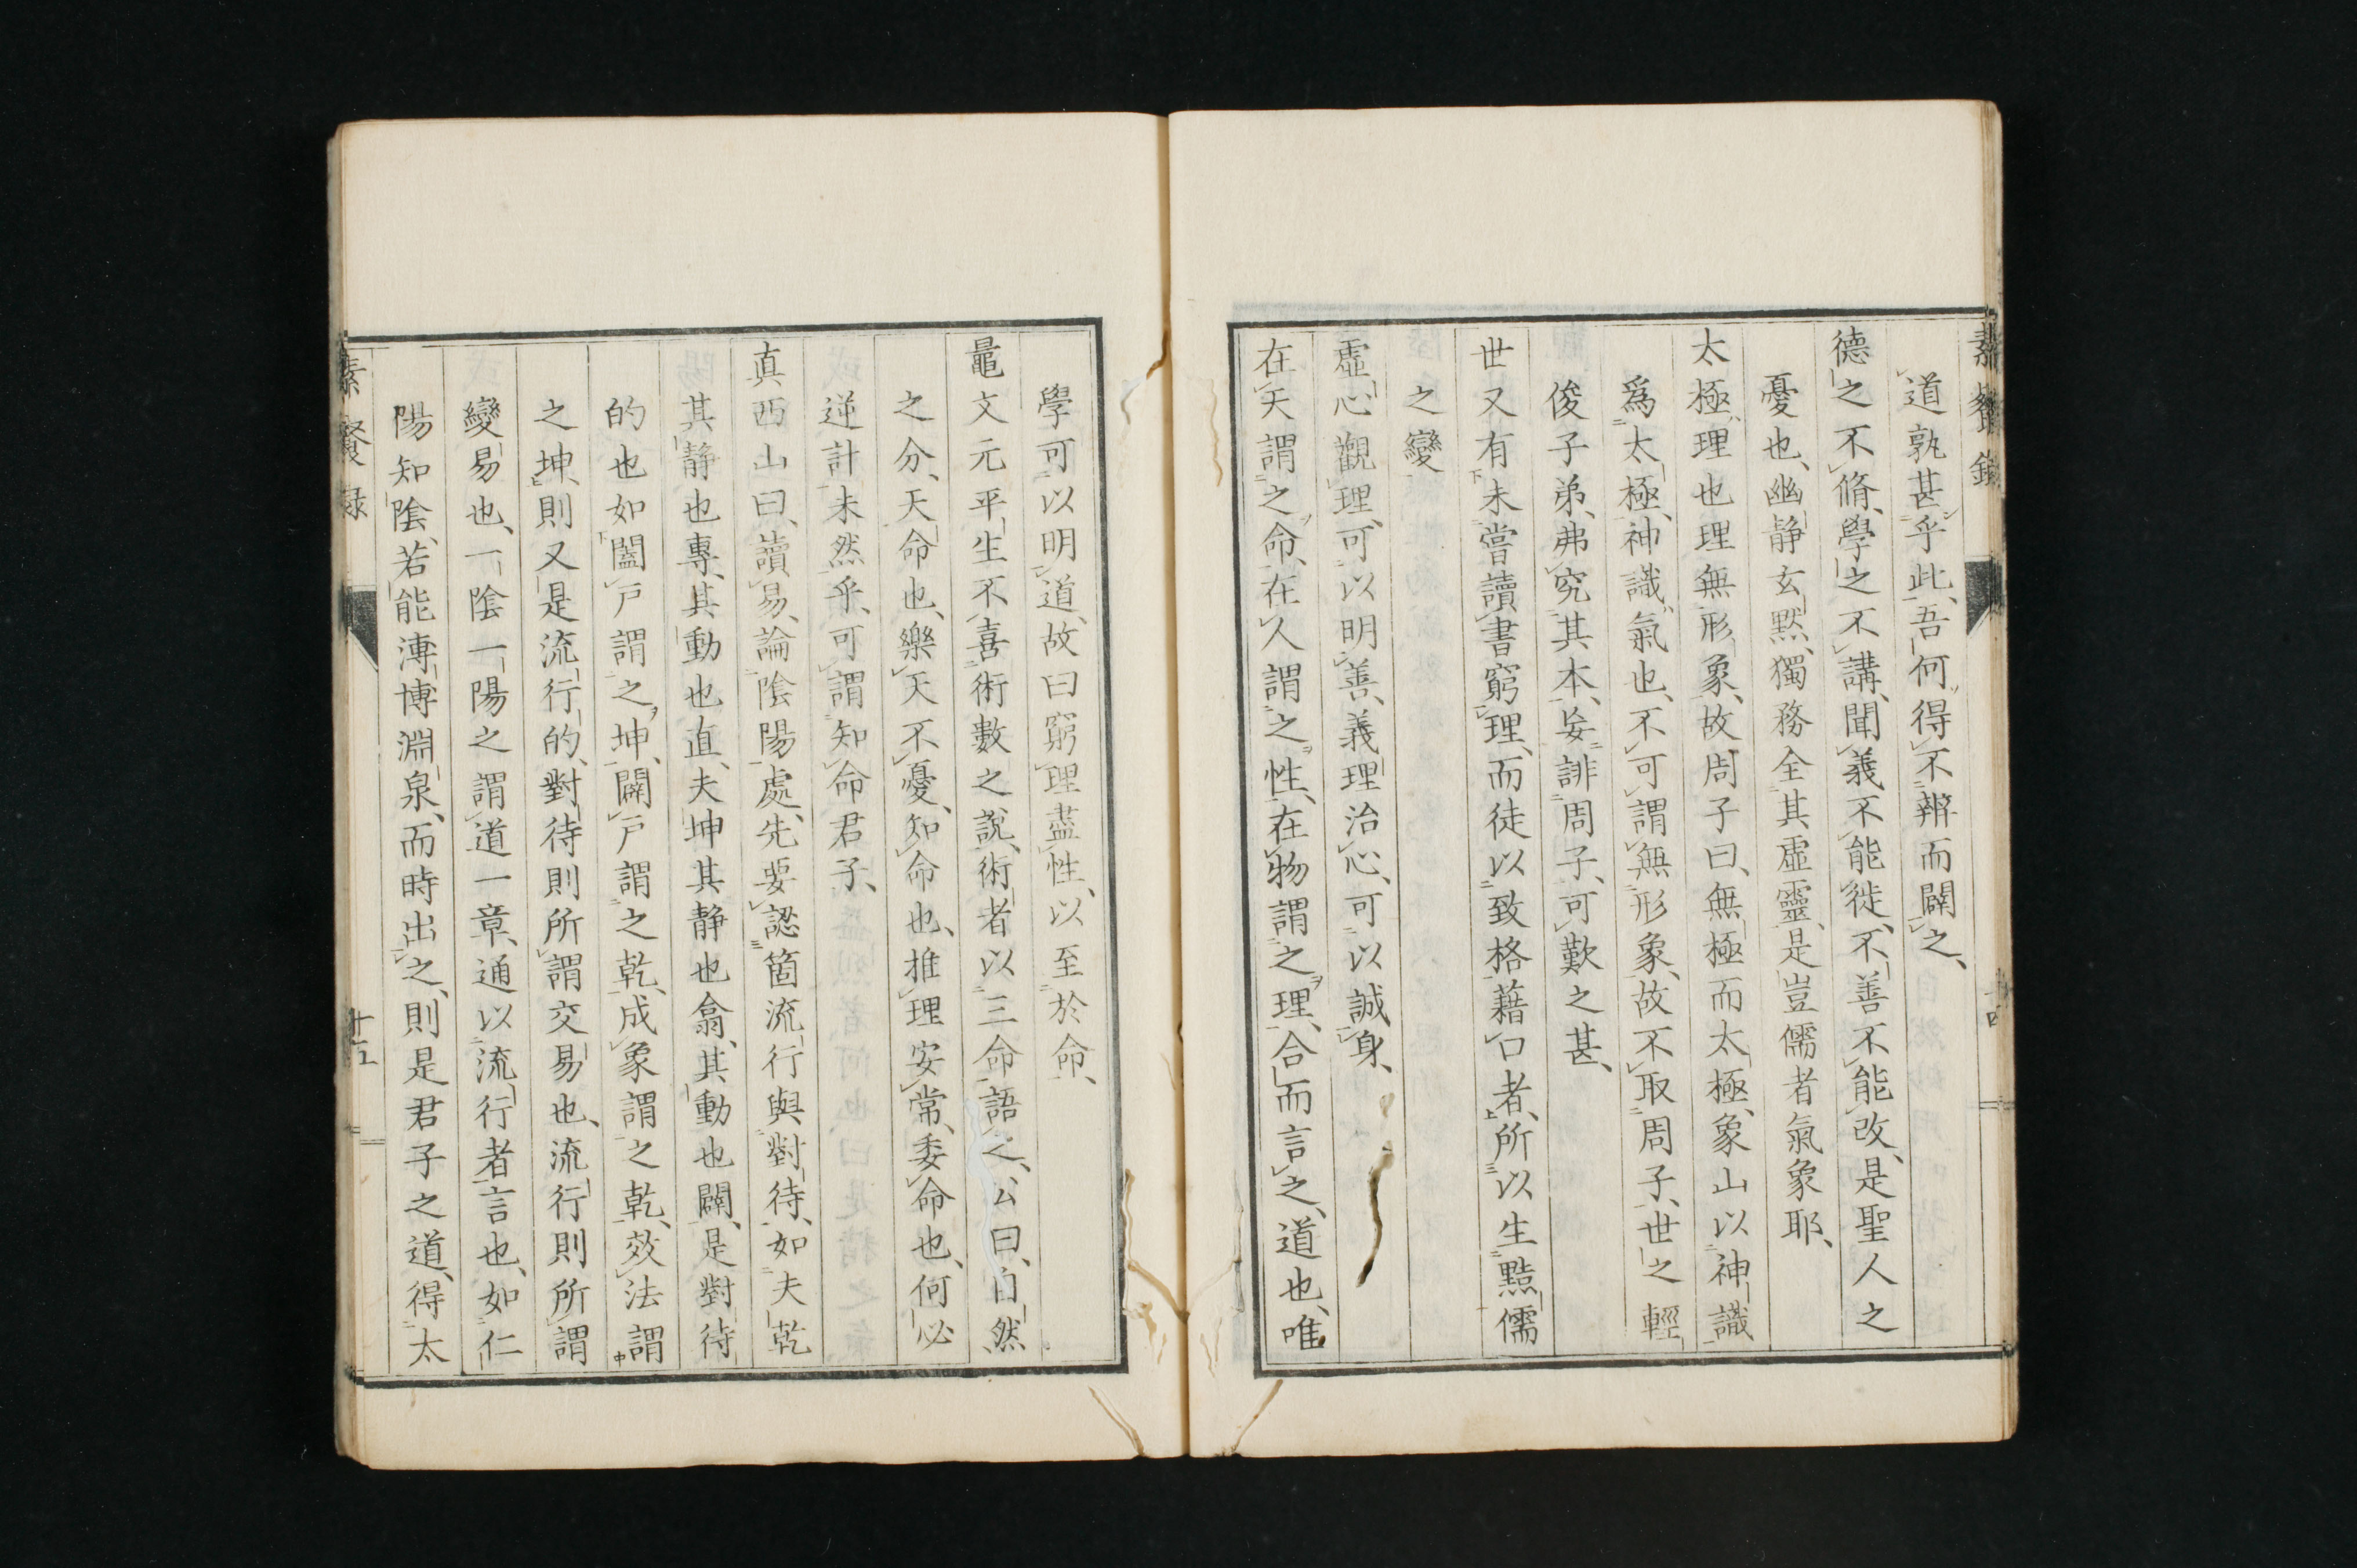 道孰甚乎此、吾何得不辨而闢之、
德之不脩、學之不講、聞義不能徙、不善不能改、是聖人之
憂也、幽静玄默、獨務全其虛靈、是豈儒者氣象耶、
太極、理也理無形象、故周子曰、無極而太極、象山以神識
爲太極、神識氣也、不可謂無形象、故不取周子、世之輕
俊子弟、弗究其本、妄誹周子、可歎之甚、
世又有未嘗讀書窮理、而徒以致格藉口者、所以生點儒
之變
虛心觀理、可以明善、義理治心、可以誠身、
在天謂之命、在人謂之性、在物謂之理、合而言之、道也、唯
十四
學可以明道、故曰窮理盡性、以至於命、
鼂文元平生不喜術數之說、術者以三命語之、公曰、自然
之分、天命也、樂天不憂、知命也、推理安常、委命也、何必
逆計未然乎、可謂知命君子、
真西山曰、讀易、論陰陽處、先要認箇流行與對待、如夫乾
其静也專、其動也直、夫坤其静也翕、其動也闢、是對待
的也如闔戸謂之坤、闢戸謂之乾、成象謂之乾、效法謂
之坤、則又是流行的、對待則所謂交易也、流行則所謂
變易也、一陰一陽之謂道一章、通以流行者言也、如仁
陽知陰、若能溥博淵泉、而時出之、則是君子之道、得太
素餐録
十五